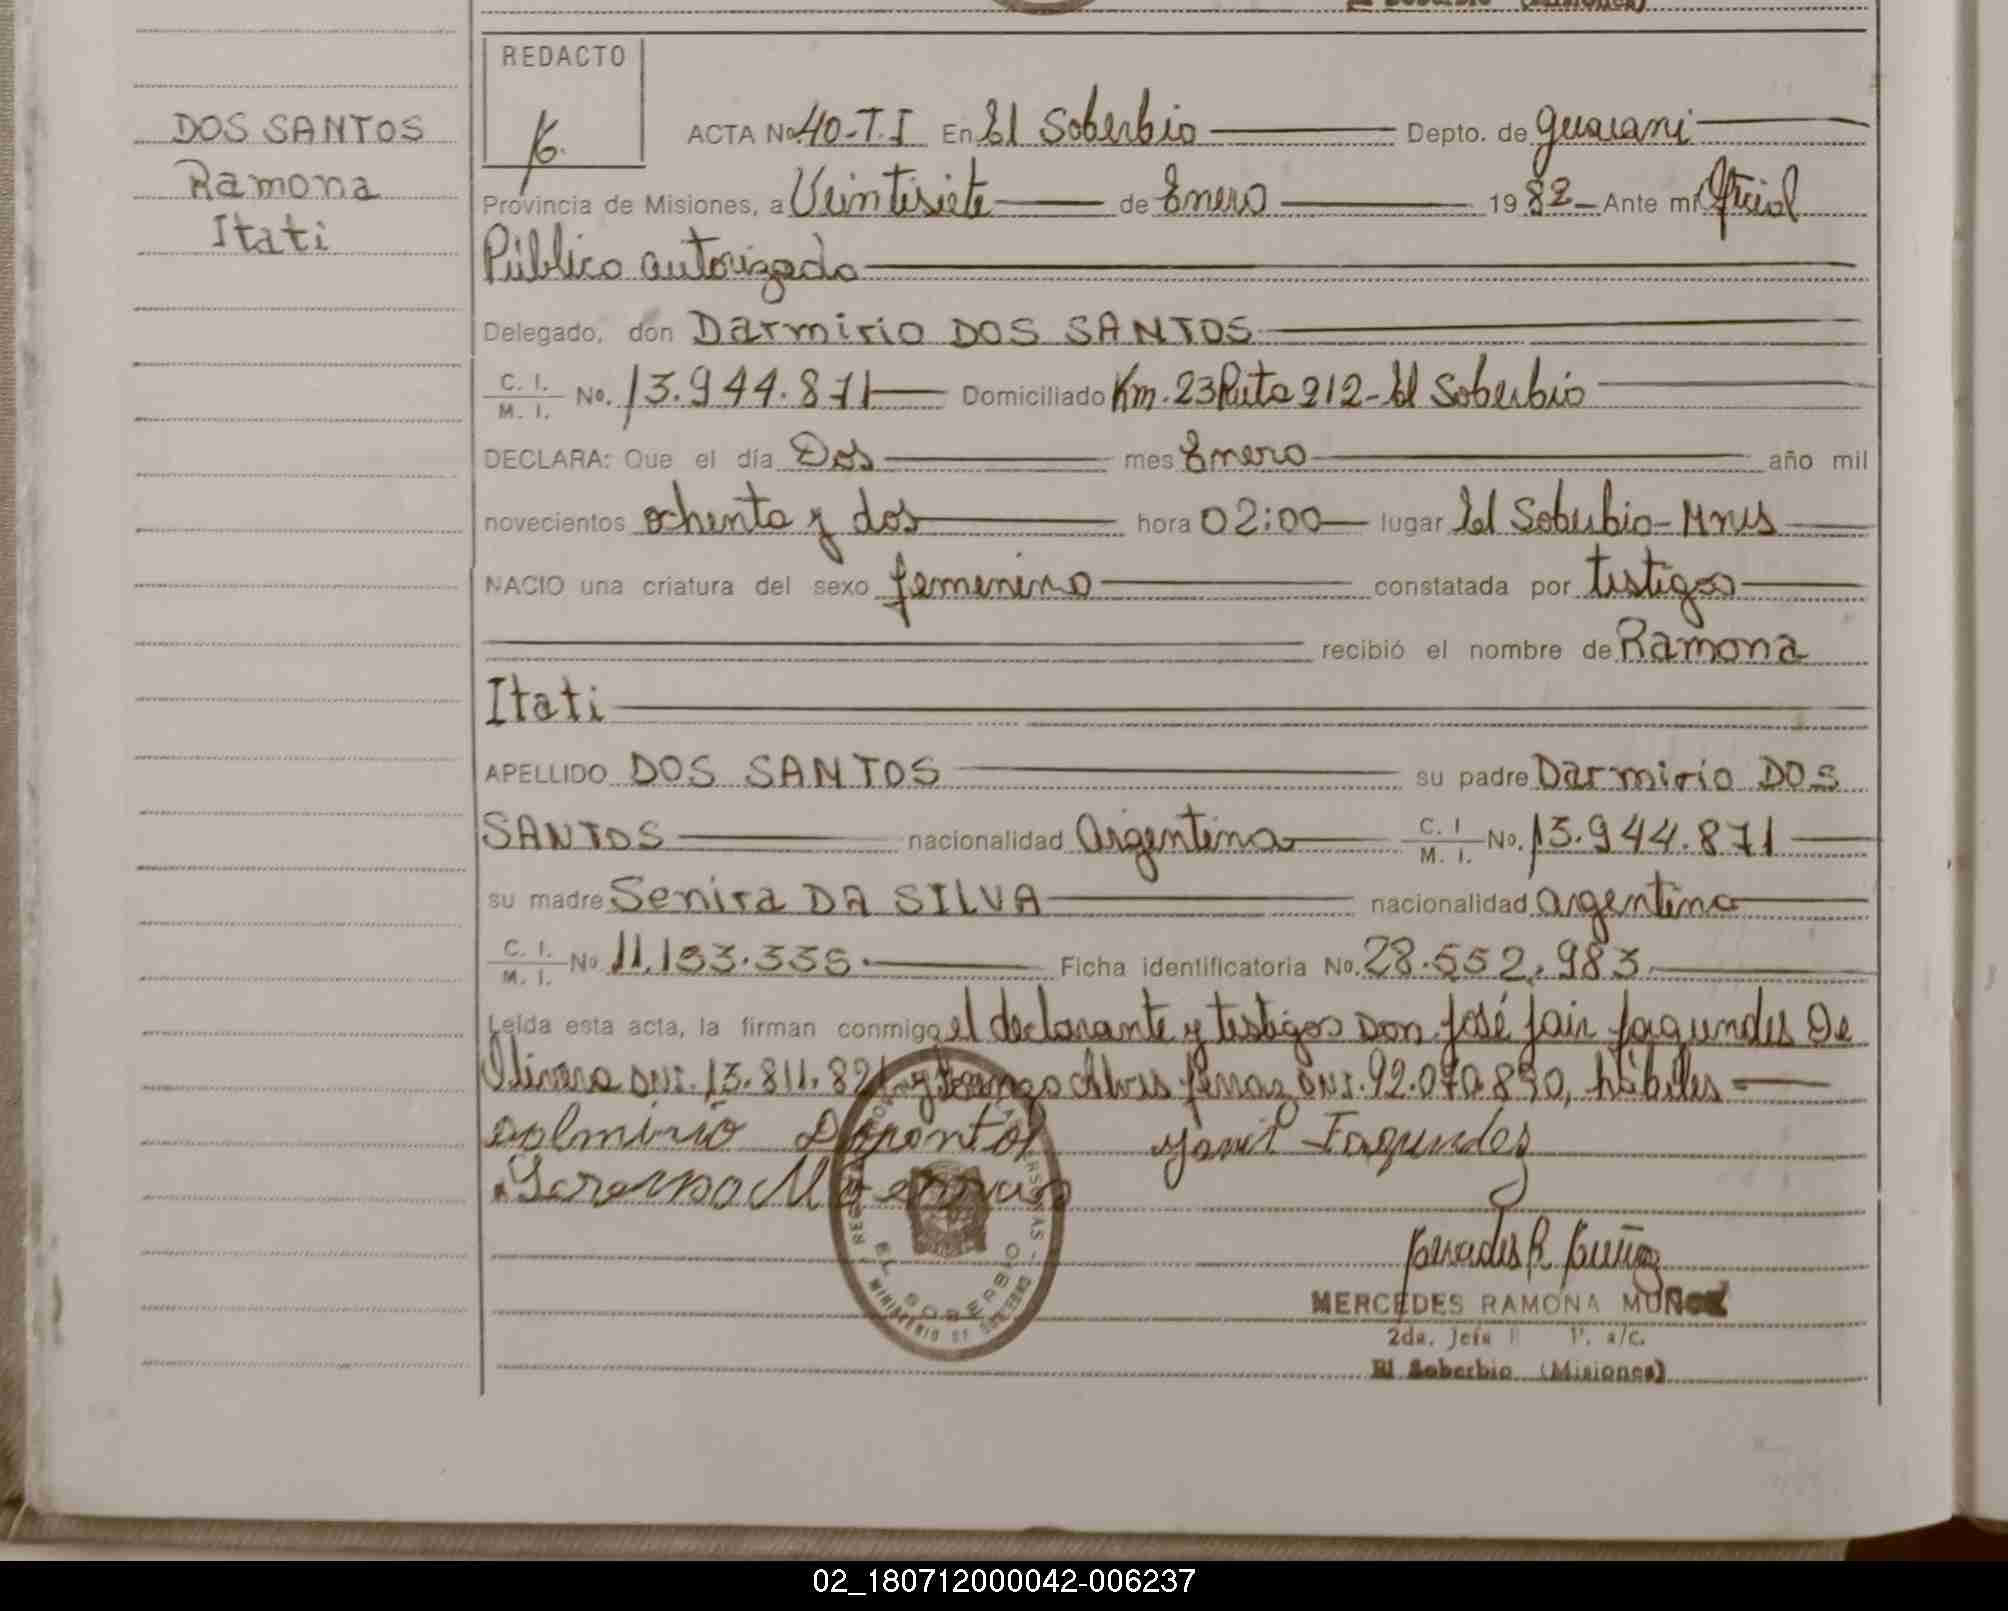 El Soberbio (Misiones)
REDACTO
DOS SANTOS
Ramona
Itati
ACTA No 40-T.I En El Soberbio Depto. de Guarani
Provincia de Misiones, a Veintisiete de Enero 1982 Ante mí Oficial
Público autorizado
Delegado, don Darmirio DOS SANTOS
C. I. / M. I. No. 13.944.871 Domiciliado Km. 23 Ruta 212 - El Soberbio
DECLARA: Que el día Dos mes Enero año mil
novecientos ochenta y dos hora 02:00 lugar El Soberbio - Mnes
NACIO una criatura del sexo femenino constatada por testigos
recibió el nombre de Ramona
Itati
APELLIDO DOS SANTOS su padre Darmirio DOS
SANTOS nacionalidad Argentina C. I / M. I. No. 13.944.871
su madre Senira DA SILVA nacionalidad argentina
C. I. / M. I. No 11.133.335. Ficha identificatoria No. 28.552.983
Leída esta acta, la firman conmigo el declarante y testigos Don José Jair Fagundes De
Olivera DNI. 13.811.821 y Alves Ferraz DNI. 92.070.890, hábiles
Fagundes
EL SOBERBIO
MINISTERIO DE GOBIERNO
MERCEDES RAMONA MUÑOZ
2da. Jefa a/c.
El Soberbio (Misiones)
02_180712000042-006237